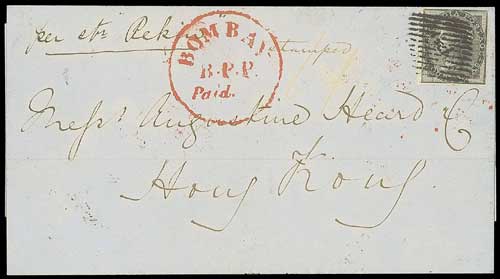 per str Pekin
stamped
BOMBAY
B.P.P.
Paid.
Messrs Augustine Heard & Co
Hong Kong.